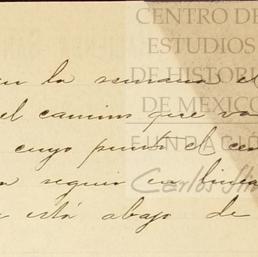 CENTRO DE
ESTUDIOS
DE HISTORIA
DE MEXICO
FUNDACIÓN
Carlos Sli
en la semana el
el camino que va
cuyo punto el ce
seguir en linea
está abajo de